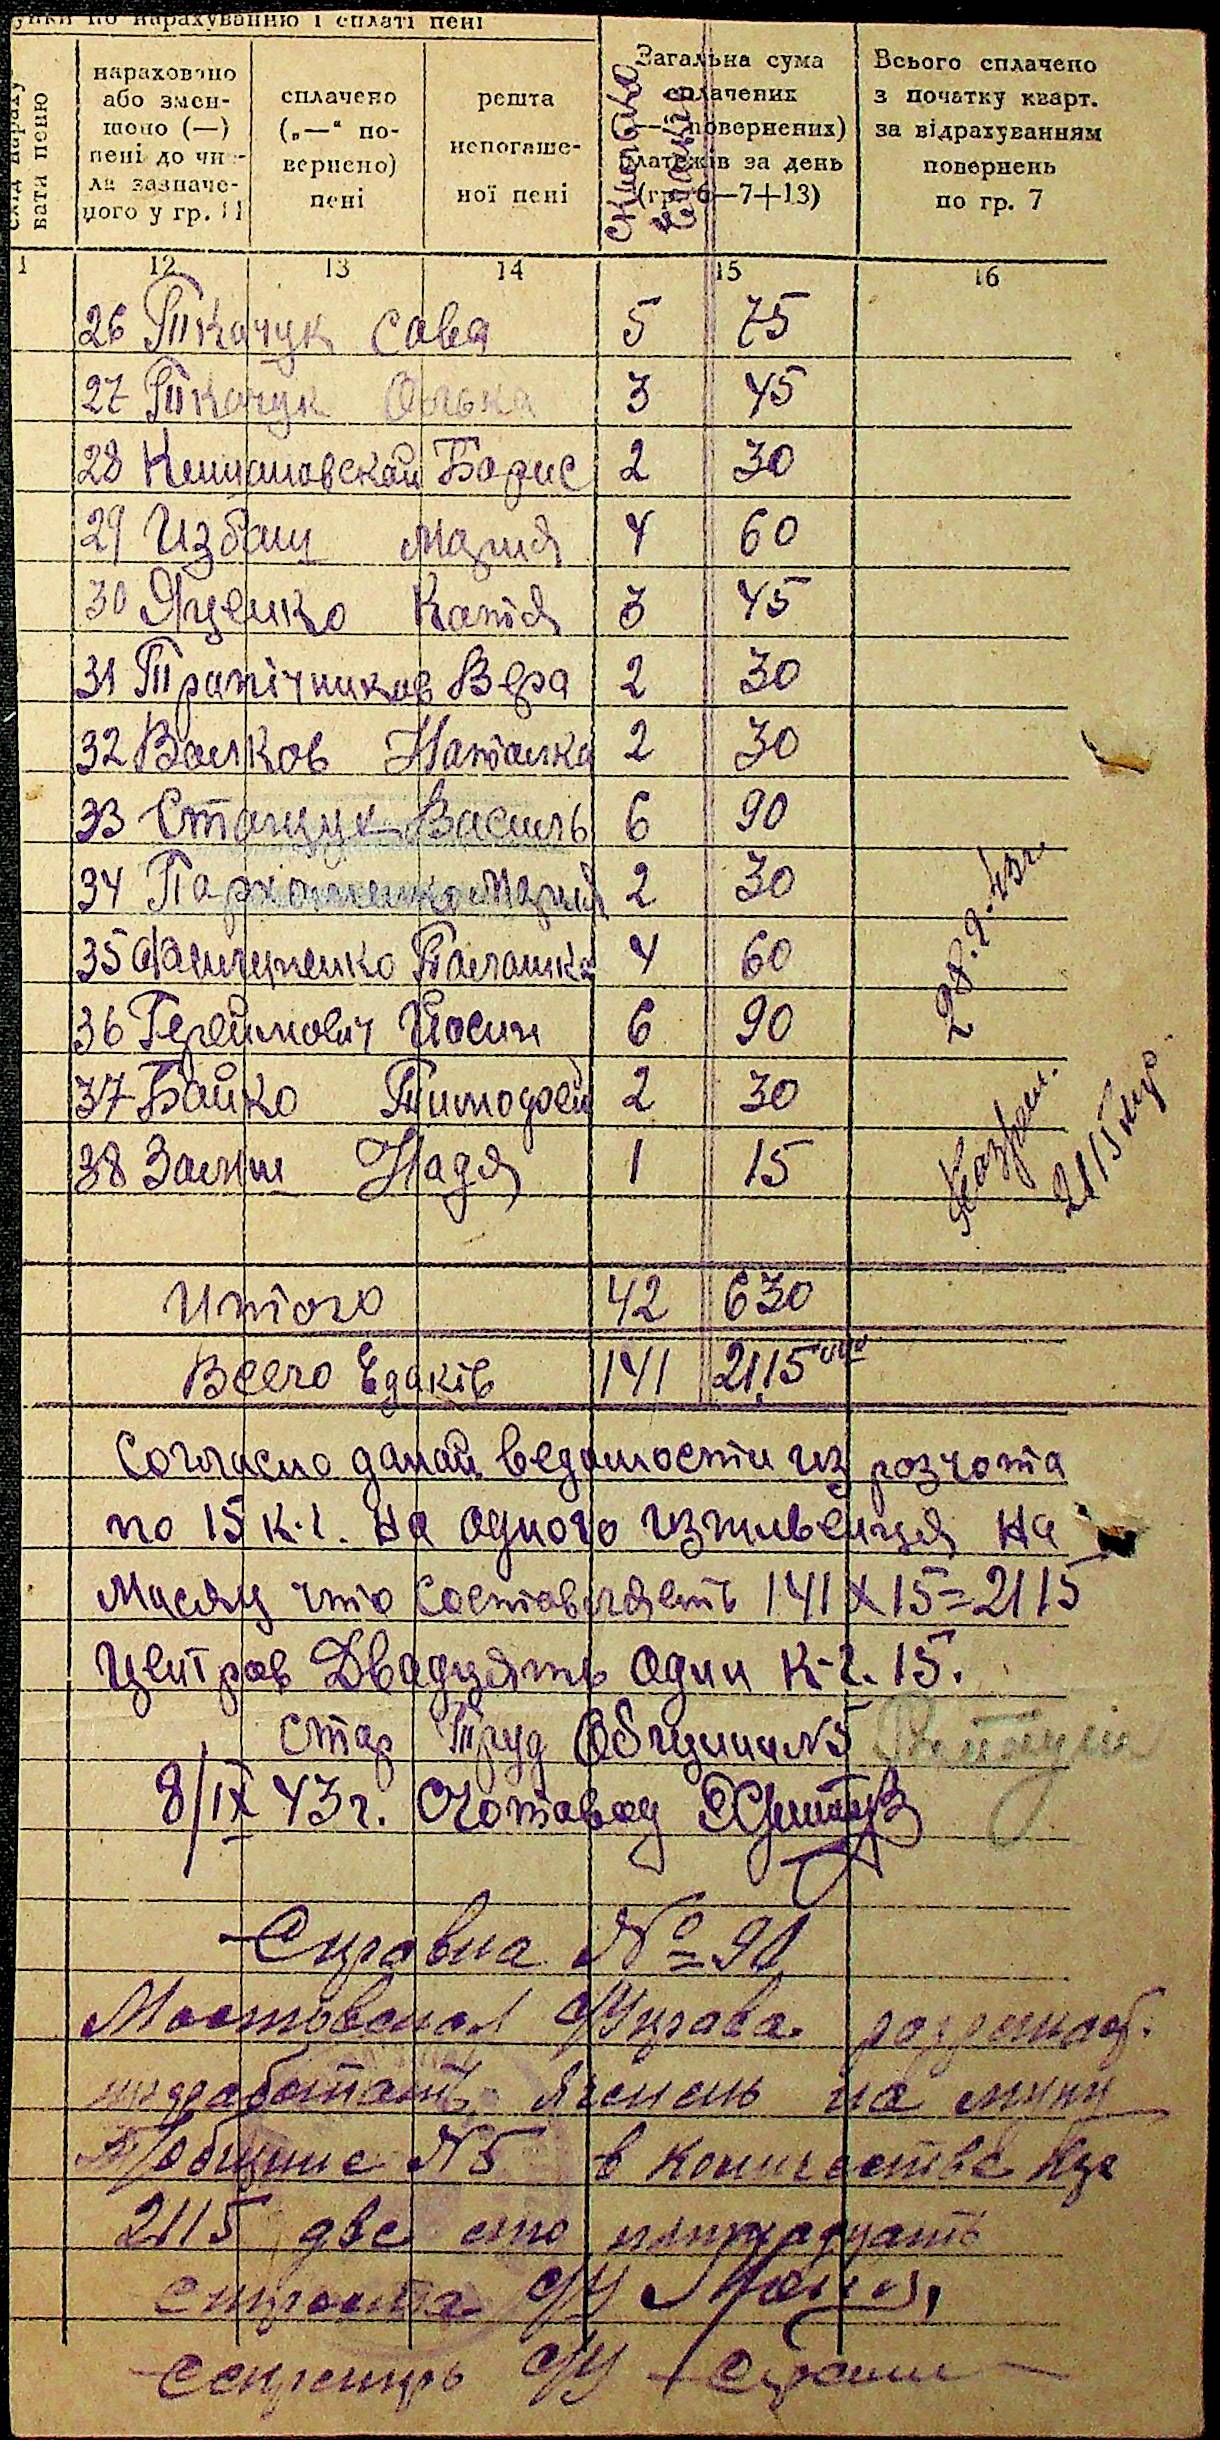 по нарахуванню і сплаті пені
вати пеню
нараховано
або змен-
шено (—)
пені до чи-
ла зазначе-
ного у гр. 11
сплачено
(„—“ по-
вернено)
пені
решта
непогаше-
ної пені
Скількіко
Едаків
Загальна сума
сплачених
(— повернених)
платежів за день
(гр. 6—7+13)
Всього сплачено
з початку кварт.
за відрахуванням
повернень
по гр. 7
1 12 13 14 15 16
26 Ткачук Сава 5 75
27 Ткачук Олька 3 45
28 Кишановскай Борис 2 30
29 Избаш Мария 4 60
30 Яценко Катя 3 45
31 Трапічников Вера 2 30
32 Валков Наталка 2 30
33 Стацук Василь 6 90
34 Пархоменко Мария 2 30
35 Палашка 4 60
36 Гереймович Йосип 6 90
37 Байко Тимофей 2 30
38 Заяч Надя 1 15
28.9.43г.
Разреш.
2115
Итого 42 630
Всего Едаків 141 21,15
Согласно данай ведомости из розчота
по 15 к.г. на одного изживенця на
Месяц что составляеть 141 x 15=2115
Центров Двадцять один к-г. 15.
Стар Труд Общини N5
8/IX 43г. Счотавод
Справка № 90
Мостовская С/Управа
ячмень на муку
Т/общине N5 в количестве кг
2115 две сто пятнадцать
Староста С/У
Секретарь С/У